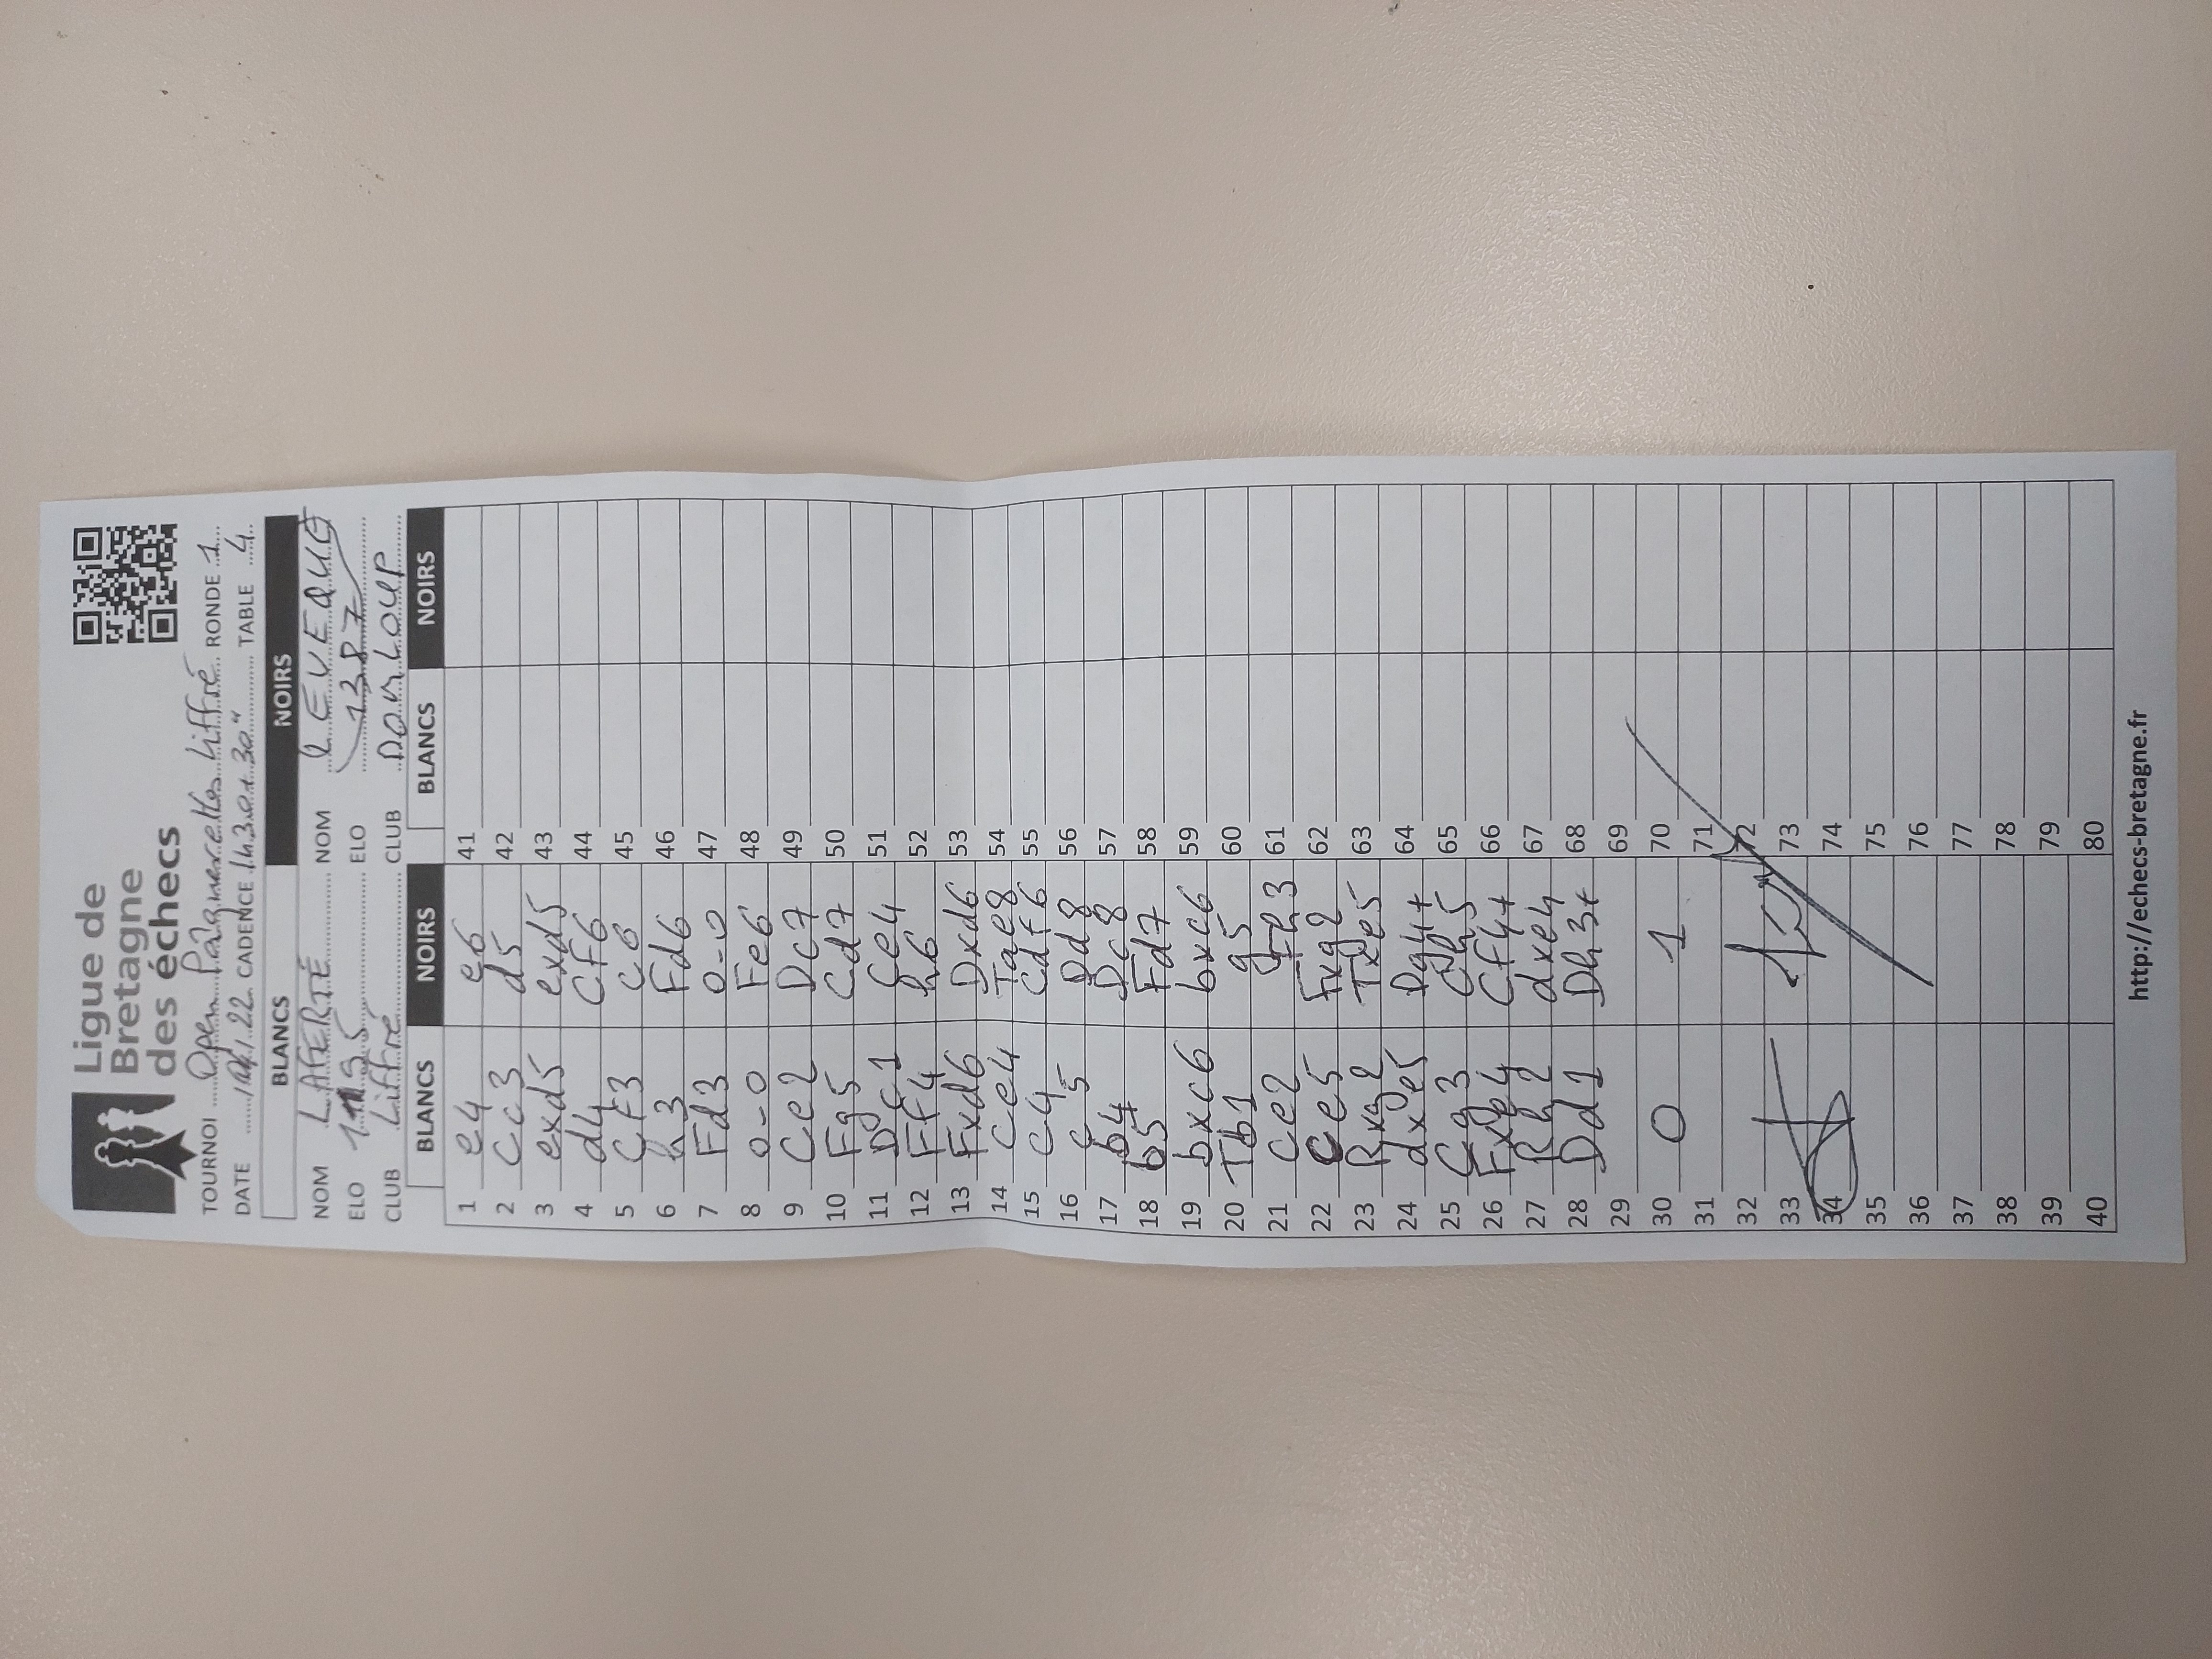 Ligue de
Bretagne
des échecs
TOURNOI Open Pâquerettes Liffré RONDE 1
DATE /04/22 CADENCE 1h30+30" TABLE 4
BLANCS NOIRS
NOM LAFERTÉ NOM LEVEQUE
ELO 1195 ELO 1387
CLUB Liffré CLUB DOMLOUP
BLANCS NOIRS BLANCS NOIRS
1 e4 e6 41
2 Cc3 d5 42
3 exd5 exd5 43
4 d4 Cf6 44
5 Cf3 c6 45
6 h3 Fd6 46
7 Fd3 0-0 47
8 0-0 Fe6 48
9 Ce2 Dc7 49
10 Fg5 Cd7 50
11 Dc1 Ce4 51
12 Ff4 h6 52
13 Fxd6 Dxd6 53
14 Ce4 Tae8 54
15 c4 Cdf6 55
16 c5 Dd8 56
17 b4 Dc8 57
18 b5 Fd7 58
19 bxc6 bxc6 59
20 Tb1 g5 60
21 Ce2 Fh3 61
22 Ce5 Fxg2 62
23 Rxg2 Txe5 63
24 dxe5 Dg4+ 64
25 Cg3 Ch5 65
26 Fxe4 Cf4+ 66
27 Rh2 dxe4 67
28 Dd1 Dh3+ 68
29 69
30 0 1 70
31 71
32 72
33 73
34 74
35 75
36 76
37 77
38 78
39 79
40 80
http://echecs-bretagne.fr